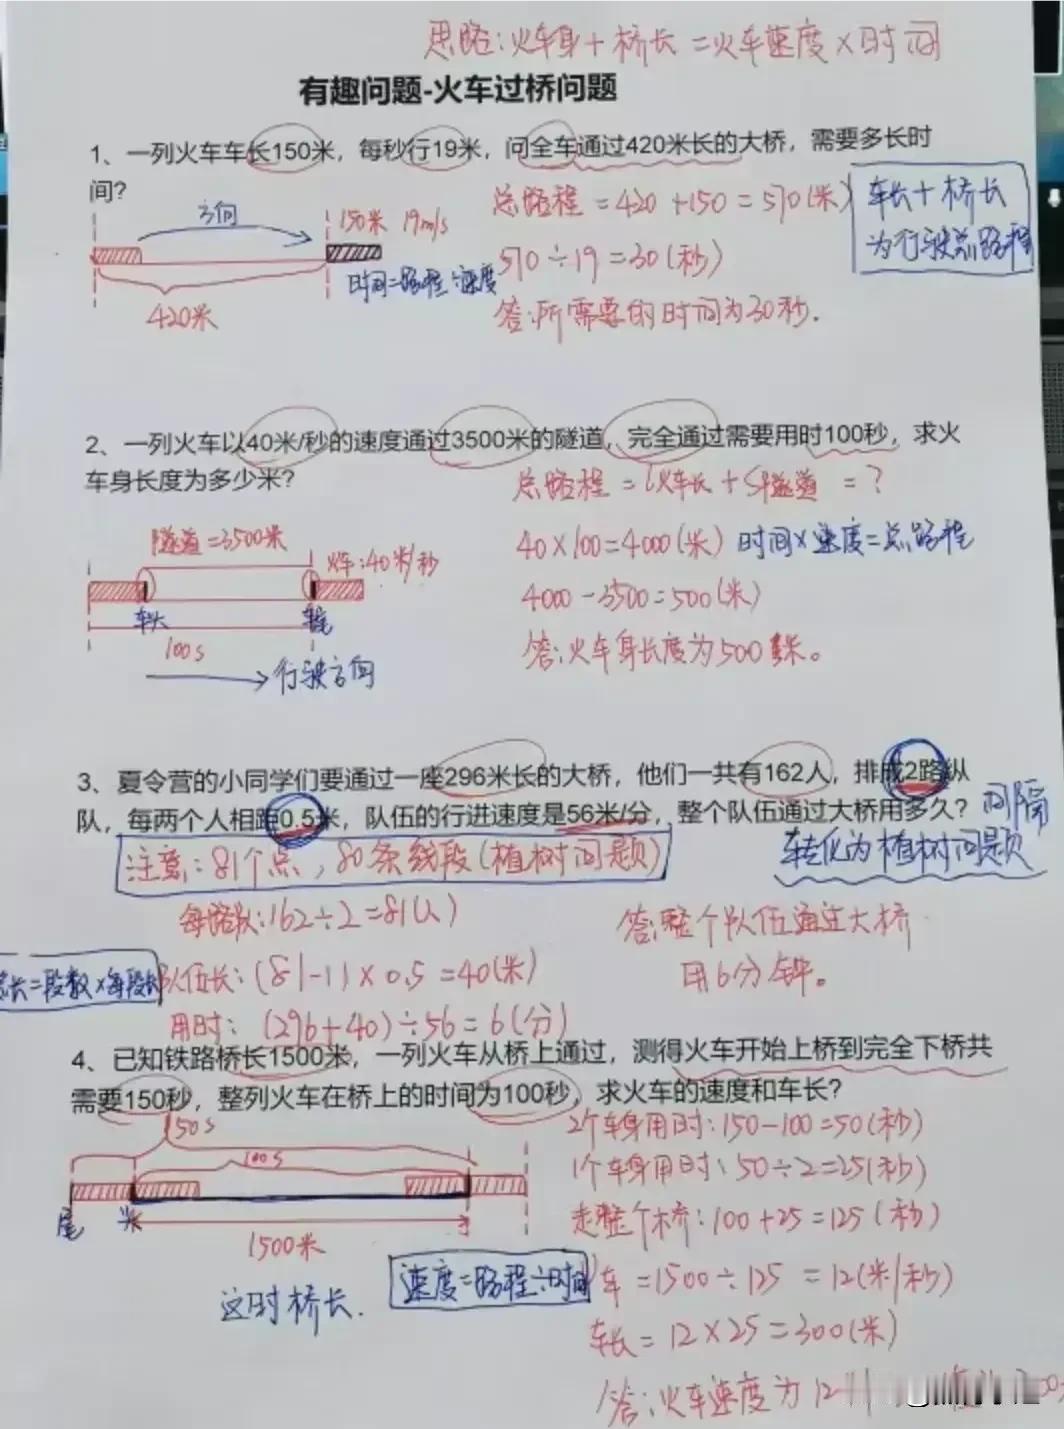 思路:火车身+桥长=火车速度×时间
有趣问题-火车过桥问题
1、一列火车车长150米，每秒行19米，问全车通过420米长的大桥，需要多长时
间？
方向
150米 19m/s
420米
时间=路程÷速度
总路程=420+150=570(米)
570÷19=30(秒)
答:所需要的时间为30秒.
车长+桥长
为行驶总路程
2、一列火车以40米/秒的速度通过3500米的隧道，完全通过需要用时100秒，求火
车身长度为多少米？
隧道=3500米
火车:40米/秒
车头
车尾
100s
行驶方向
总路程=火车长+隧道=?
40×100=4000(米) 时间×速度=总路程
4000-3500=500(米)
答:火车身长度为500米。
3、夏令营的小同学们要通过一座296米长的大桥，他们一共有162人，排成2路纵
队，每两个人相距0.5米，队伍的行进速度是56米/分，整个队伍通过大桥用多久？
间隔
转化为植树问题
注意:81个点,80条线段(植树问题)
每路队:162÷2=81(人)
总长=段数×每段长
队伍长:(81-1)×0.5=40(米)
用时:(296+40)÷56=6(分)
答:整个队伍通过大桥
用6分钟。
4、已知铁路桥长1500米，一列火车从桥上通过，测得火车开始上桥到完全下桥共
需要150秒，整列火车在桥上的时间为100秒，求火车的速度和车长？
150s
100s
尾
头
1500米
这时桥长.
速度=路程÷时间
2个车身用时:150-100=50(秒)
1个车身用时:50÷2=25(秒)
走整个桥:100+25=125(秒)
V车=1500÷125=12(米/秒)
车长=12×25=300(米)
答:火车速度为12